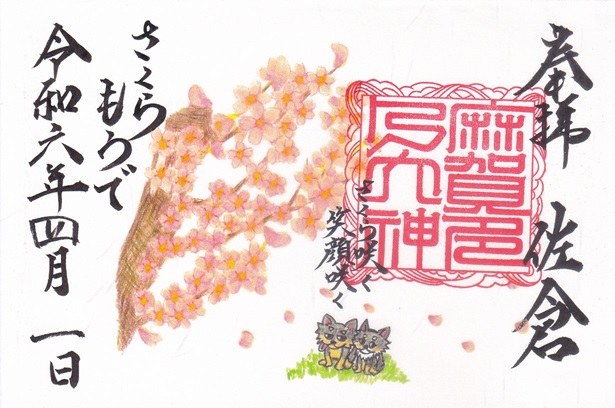 奉拝 佐倉
麻賀多
大神
さくら咲く
笑顔咲く
さくら
もうで
令和六年四月一日